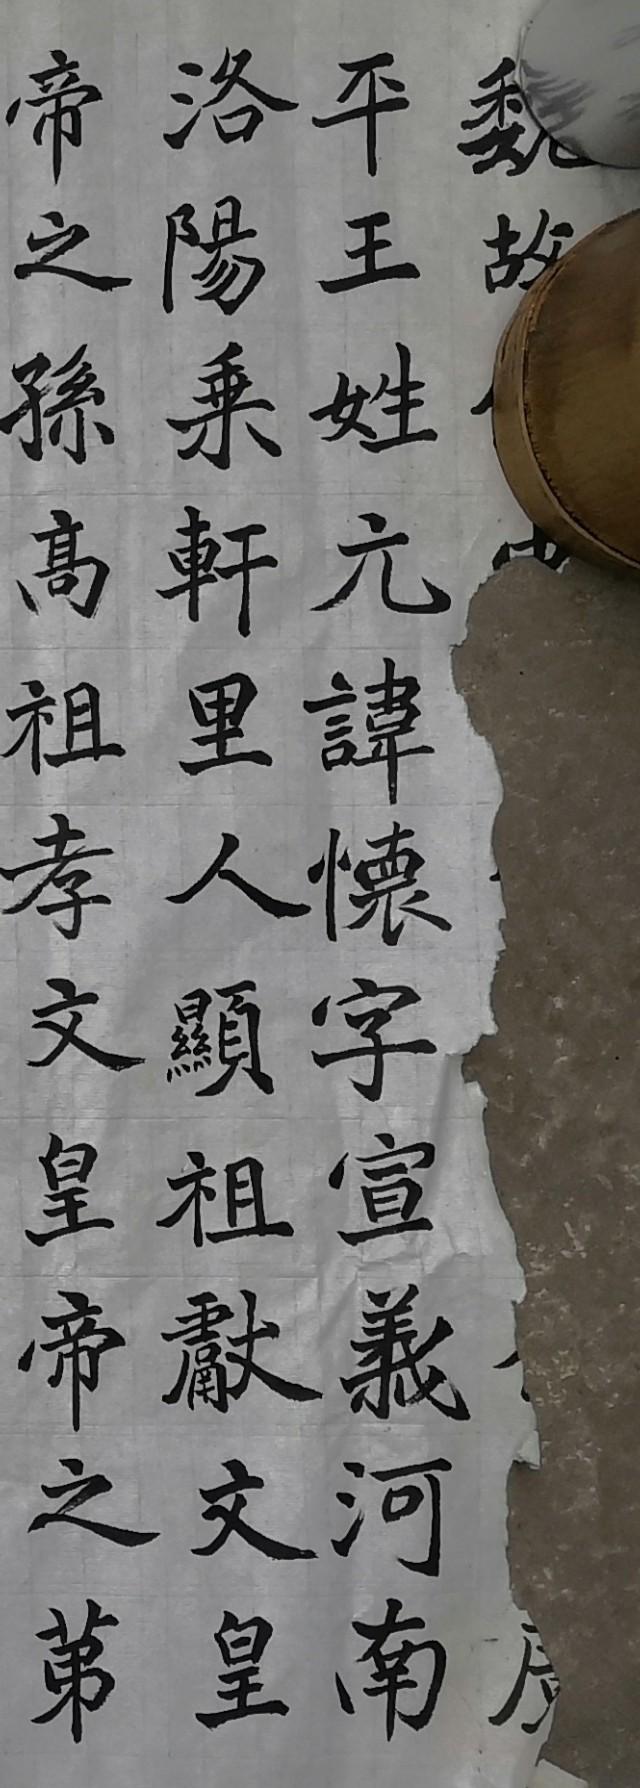 魏故
平王姓元諱懷字宣義河南
洛陽乘軒里人顯祖獻文皇
帝之孫高祖孝文皇帝之第